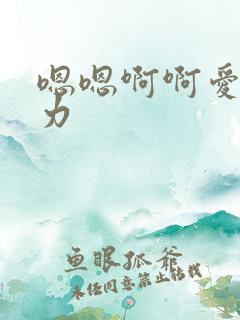 嗯嗯啊啊爱
力
鱼眼孤爷
未经同意禁止转载